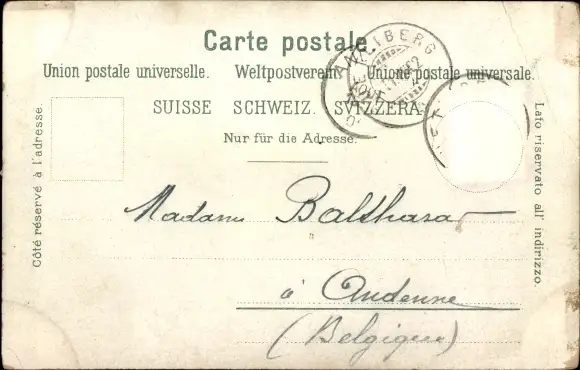 Carte postale.
Union postale universelle. Weltpostverein. Unione postale universale.
SUISSE SCHWEIZ. SVIZZERA.
Nur für die Adresse.
Côté réservé à l'adresse.
Lato riservato all' indirizzo.
Madame Balthasar
à Andenne
(Belgique)